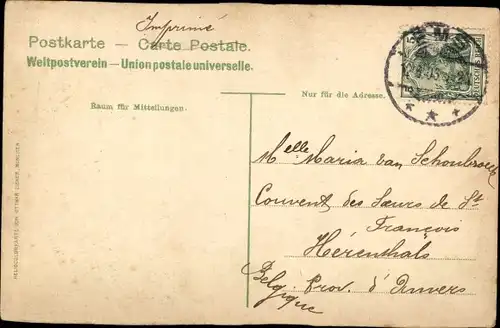 Imprimé
Postkarte — Carte Postale.
Weltpostverein — Union postale universelle.
Nur für die Adresse.
Raum für Mitteilungen.
EMS
Melle Maria van Schoubroeck
Couvent des Sœurs de St
François
Hérenthals
Belgique Prov. d'Anvers